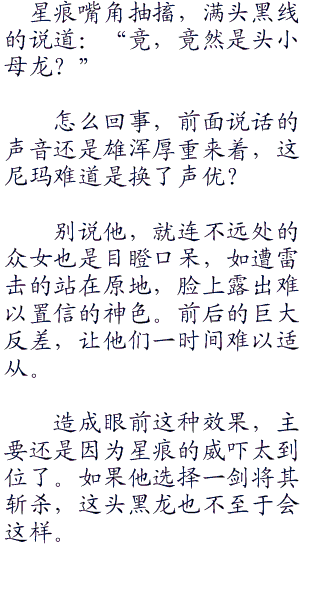 星痕嘴角抽搐，满头黑线
的说道：“竟，竟然是头小
母龙？”
怎么回事，前面说话的
声音还是雄浑厚重来着，这
尼玛难道是换了声优？
别说他，就连不远处的
众女也是目瞪口呆，如遭雷
击的站在原地，脸上露出难
以置信的神色。前后的巨大
反差，让他们一时间难以适
从。
造成眼前这种效果，主
要还是因为星痕的威吓太到
位了。如果他选择一剑将其
斩杀，这头黑龙也不至于会
这样。